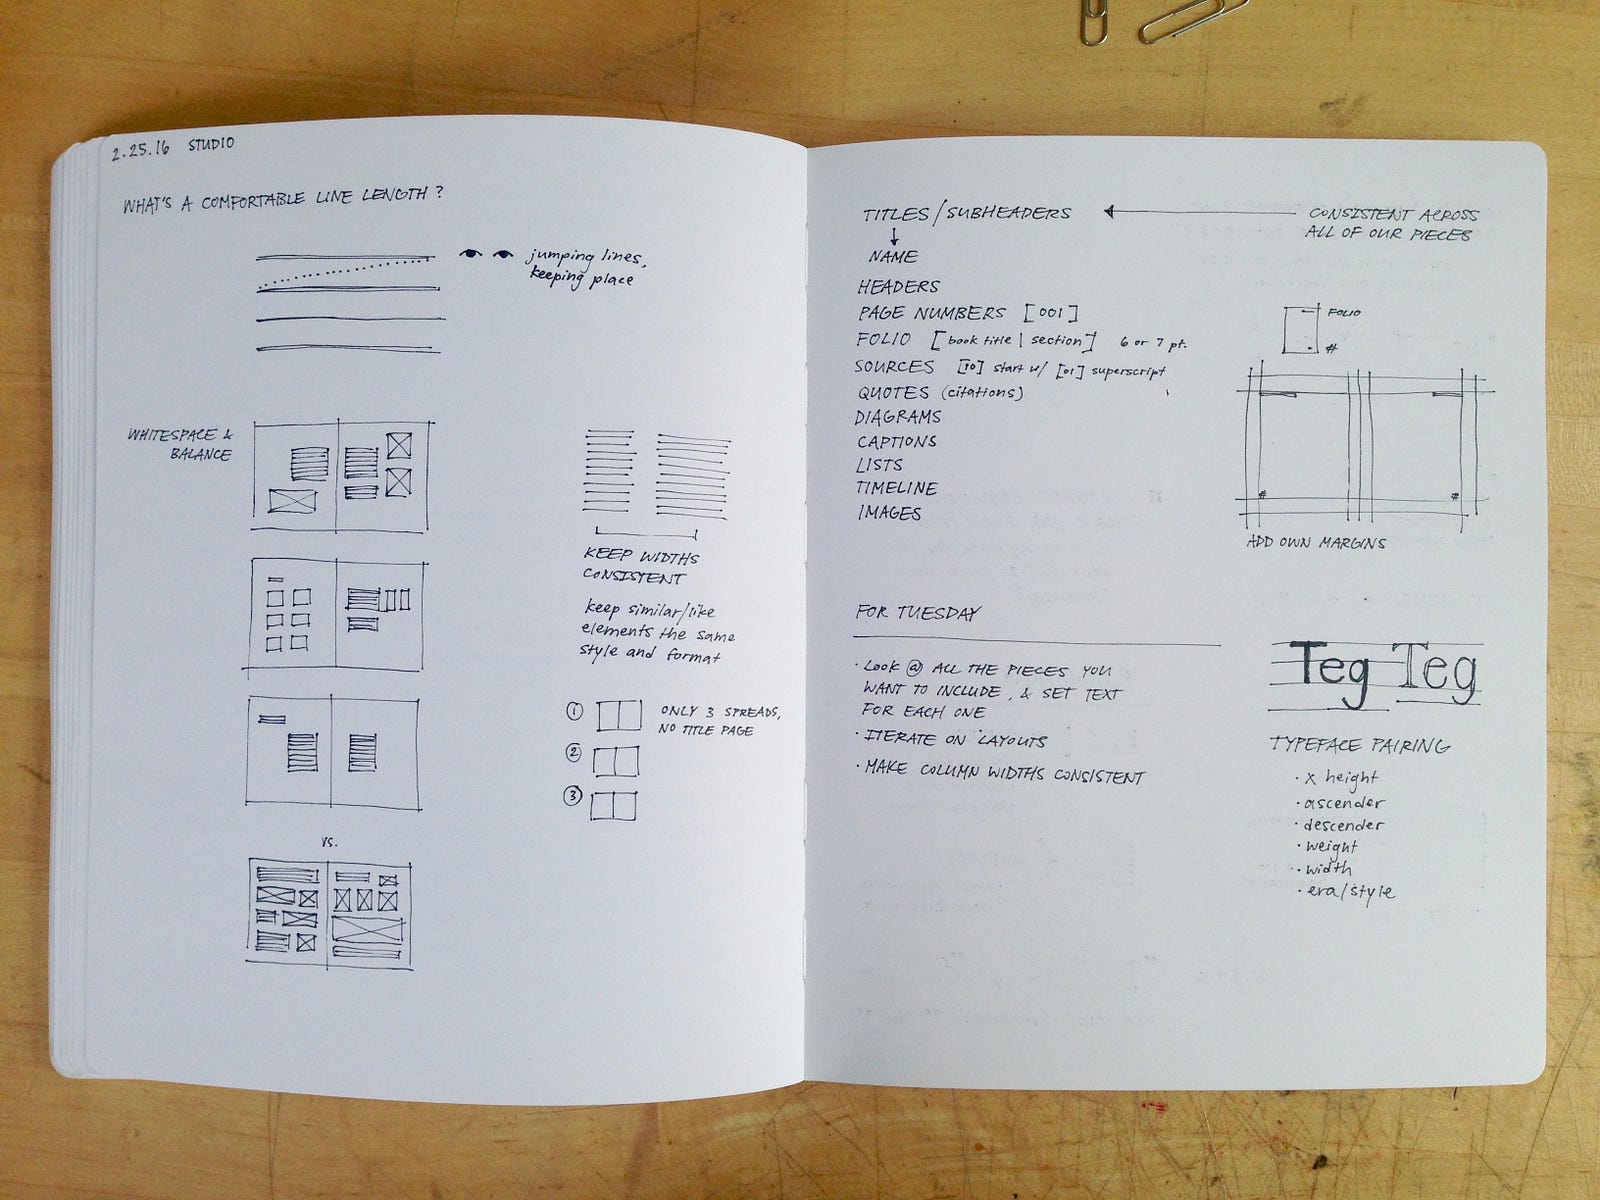 2.25.16 STUDIO
WHAT'S A COMFORTABLE LINE LENGTH?
jumping lines,
keeping place
WHITESPACE &
BALANCE
KEEP WIDTHS
CONSISTENT
keep similar/like
elements the same
style and format
1 ONLY 3 SPREADS,
NO TITLE PAGE
2
3
vs.
TITLES/SUBHEADERS
CONSISTENT ACROSS
ALL OF OUR PIECES
NAME
HEADERS
PAGE NUMBERS [001]
FOLIO [book title | section] 6 or 7 pt.
SOURCES start w/ [01] superscript
QUOTES (citations)
DIAGRAMS
CAPTIONS
LISTS
TIMELINE
IMAGES
FOLIO
#
# #
ADD OWN MARGINS
FOR TUESDAY
· LOOK @ ALL THE PIECES YOU
WANT TO INCLUDE, & SET TEXT
FOR EACH ONE
· ITERATE ON LAYOUTS
· MAKE COLUMN WIDTHS CONSISTENT
Teg Teg
TYPEFACE PAIRING
· x height
· ascender
· descender
· weight
· width
· era/style